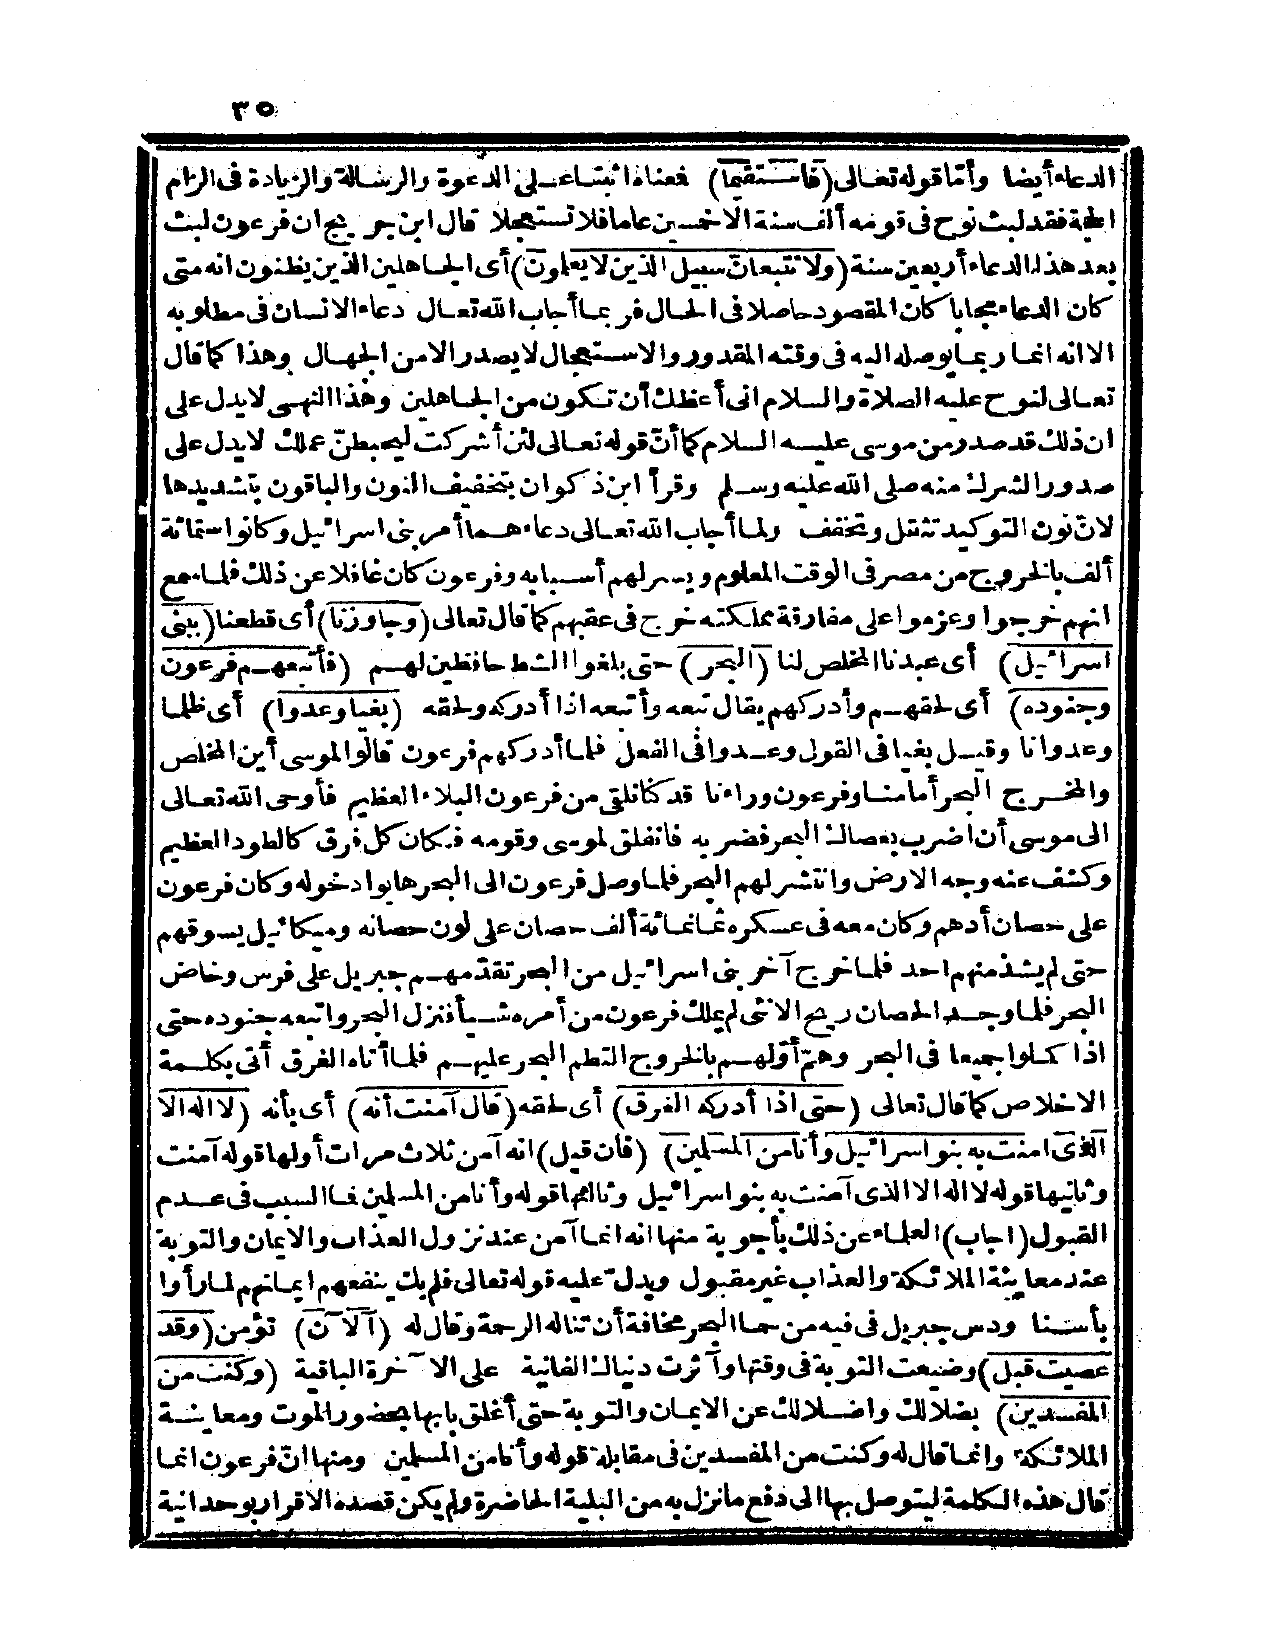 ٣٥
الدعاء أيضا وأمّا قوله تعالى (فاستقيما) فمعناه اثبتا على الدعوة والرسالة والزيادة فى الزام
الحجة فقد لبث نوح فى قومه ألف سنة الاخمسين عاما فلا تستعجلا قال ابن جريج ان فرعون لبث
بعد هذا الدعاء أربعين سنة (ولا تتبعانّ سبيل الذين لا يعلمون) أى الجاهلين الذين يظنون انه متى
كان الدعاء مجابا كان المقصود حاصلا فى الحال فربما أجاب الله تعالى دعاء الانسان فى مطلوبه
الا انه انما ربما يوصله اليه فى وقته المقدور والاستعجال لا يصدر الا من الجهال وهذا كما قال
تعالى لنوح عليه الصلاة والسلام انى أعظك أن تكون من الجاهلين وهذا النهى لا يدل على
ان ذلك قد صدر من موسى عليه السلام كما أنّ قوله تعالى لئن أشركت ليحبطنّ عملك لا يدل على
صدور الشرك منه صلى الله عليه وسلم وقرأ ابن ذكوان بتخفيف النون والباقون بتشديدها
لانّ نون التوكيد تثقل وتخفف ولما أجاب الله تعالى دعاءهما أمر بنى اسرائيل وكانوا ستمائة
ألف بالخروج من مصر فى الوقت المعلوم ويسر لهم أسبابه وفرعون كان غافلا عن ذلك فلما سمع
انهم خرجوا وعزموا على مفارقة مملكته خرج فى عقبهم كما قال تعالى (وجاوزنا) أى قطعنا (ببنى
اسرائيل) أى عبدنا المخلص لنا (البحر) حتى بلغوا الشط حافظين لهم (فأتبعهم فرعون
وجنوده) أى لحقهم وأدركهم يقال تبعه وأتبعه اذا أدركه ولحقه (بغيا وعدوا) أى ظلما
وعدوانا وقيل بغيا فى القول وعدوا فى الفعل فلما أدركهم فرعون قالوا لموسى أين المخلص
والمخرج البحر أمامنا وفرعون وراءنا قد كنا نلقى من فرعون البلاء العظيم فأوحى الله تعالى
الى موسى أن اضرب بعصاك البحر فضربه فانفلق لموسى وقومه فكان كل فرق كالطود العظيم
وكشف عنه وجه الارض وانتشر لهم البحر فلما وصل فرعون الى البحر هابوا دخوله وكان فرعون
على حصان أدهم وكان معه فى عسكره ثمانمائة ألف حصان على لون حصانه وميكائيل يسوقهم
حتى لم يشذ منهم احد فلما خرج آخر بنى اسرائيل من البحر تقدّمهم جبريل على فرس وخاض
البحر فلما وجد الحصان ريح الانثى لم يملك فرعون من أمره شيأ فنزل البحر واتبعه جنوده حتى
اذا كملوا جميعا فى البحر وهمّ أوّلهم بالخروج التطم البحر عليهم فلما أتاه الغرق أتى بكلمة
الاخلاص كما قال تعالى (حتى اذا أدركه الغرق) أى لحقه (قال آمنت أنه) أى بأنه (لا اله الا
الذى امنت به بنو اسرائيل وأنا من المسلمين) (فان قيل) انه آمن ثلاث مرات أولها قوله آمنت
وثانيها قوله لا اله الا الذى آمنت به بنو اسرائيل وثالثها قوله وأنا من المسلمين فما السبب فى عدم
القبول (اجاب) العلماء عن ذلك بأجوبة منها انه انما آمن عند نزول العذاب والايمان والتوبة
عند معاينة الملائكة والعذاب غير مقبول ويدل عليه قوله تعالى فلم يك ينفعهم ايمانهم لما رأوا
بأسنا ودس جبريل فى فيه من حما البحر مخافة أن تناله الرحمة وقال له (آلآن) تؤمن (وقد
عصيت قبل) وضيعت التوبة فى وقتها وآثرت دنياك الفانية على الآخرة الباقية (وكنت من
المفسدين) بضلالك واضلالك عن الايمان والتوبة حتى أغلق بابها بحضور الموت ومعاينة
الملائكة وانما قال له وكنت من المفسدين فى مقابلة قوله وأنا من المسلمين ومنها انّ فرعون انما
قال هذه الكلمة ليتوصل بها الى دفع ما نزل به من البلية الحاضرة ولم يكن قصده الاقرار بوحدانية